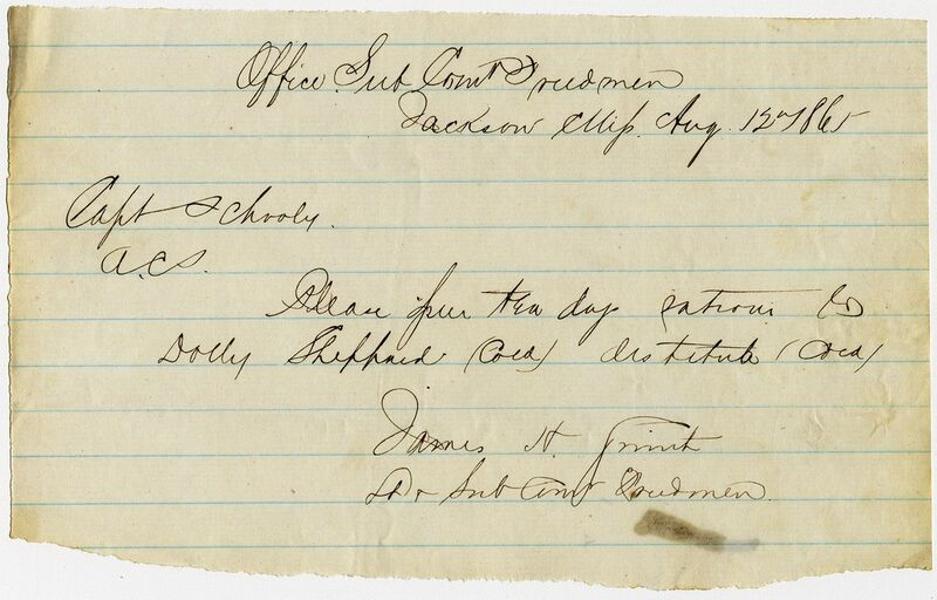 Office Sub Comt Freedmen
Jackson Miss. Aug. 12th 1865
Capt Schooly.
A.C.S.
Please issue ten days rations to
Dolly Sheppard (Cold) destitute (Cold)
James H.
Sub Comt Freedmen.